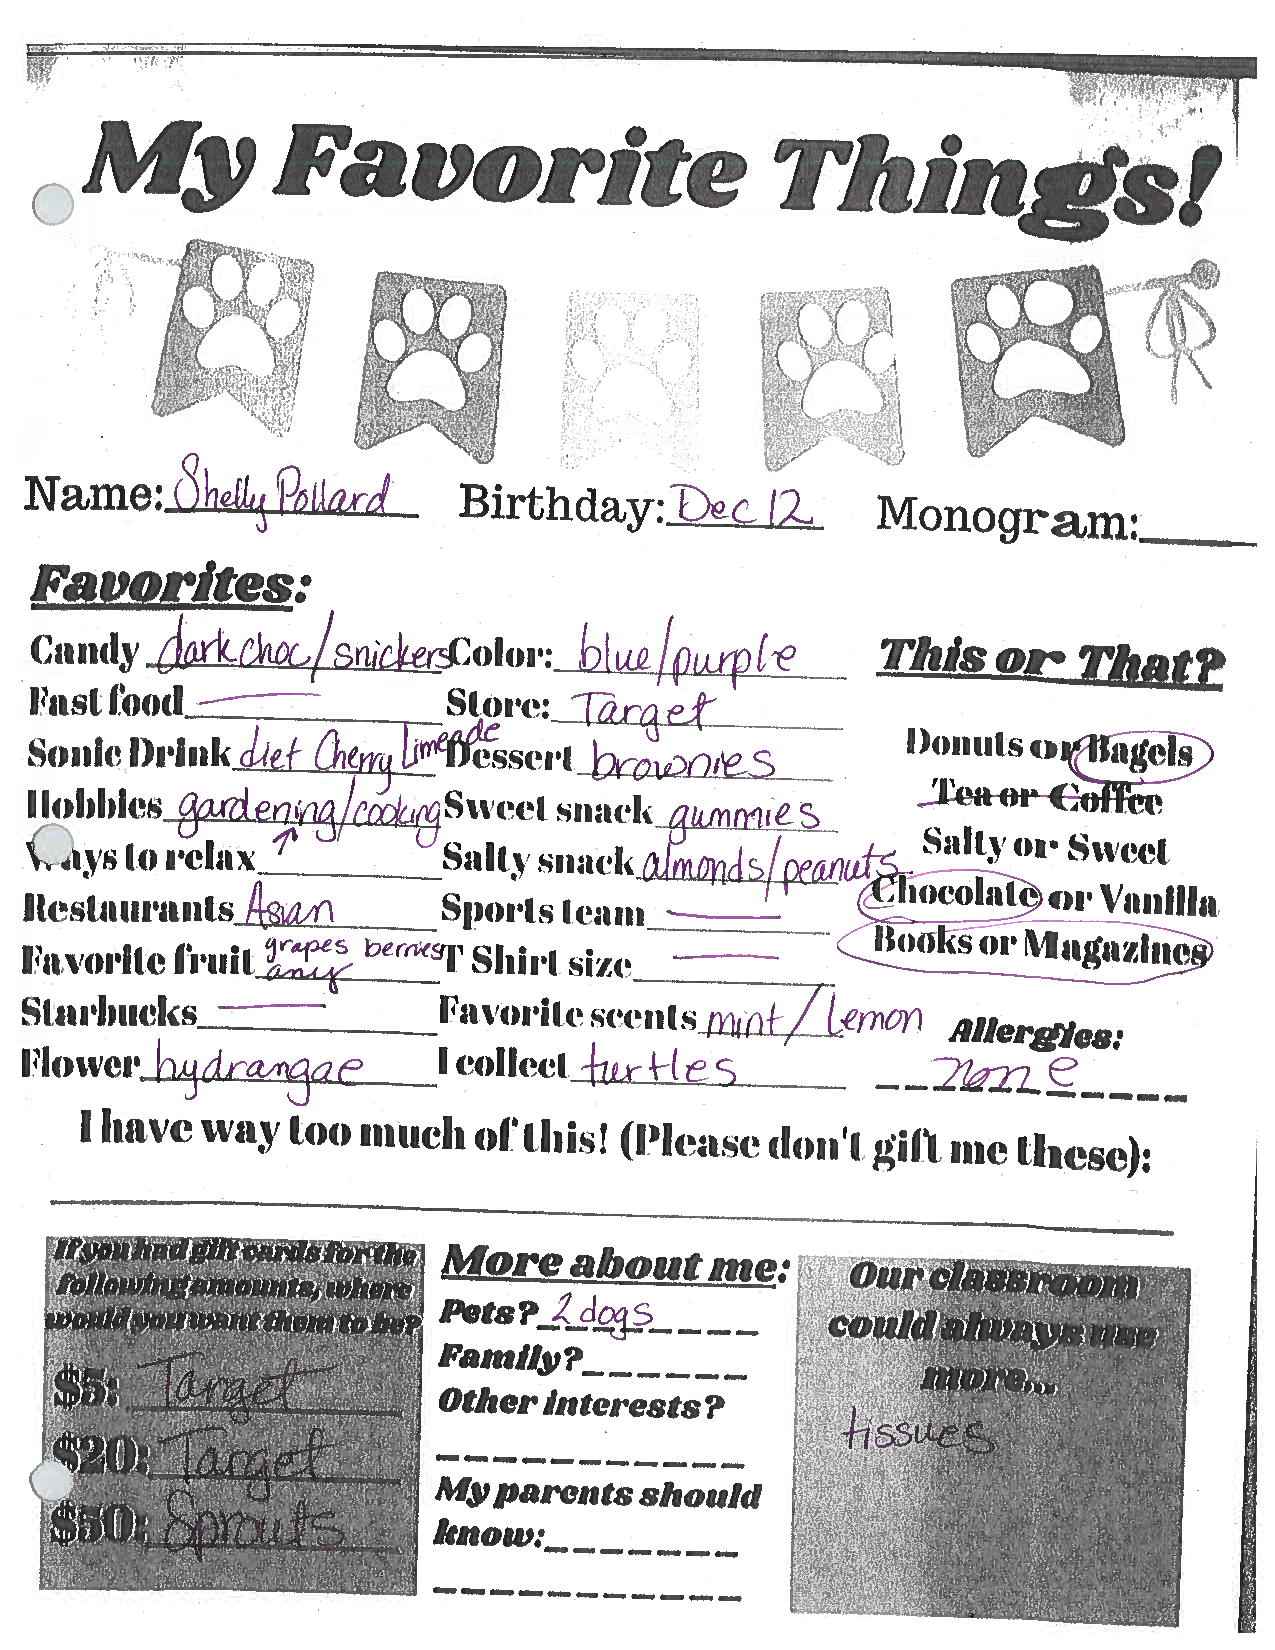 My Favorite Things!
Name: Shelly Pollard Birthday: Dec 12 Monogram:
Favorites:
Candy dark choc/snickers Color: blue/purple
This or That?
Fast food — Store: Target
Sonic Drink diet Cherry Limeade Dessert brownies
Donuts or Bagels
Hobbies gardening/cooking Sweet snack gummies
Tea or Coffee
Ways to relax ↑ Salty snack almonds/peanuts
Salty or Sweet
Restaurants Asian Sports team —
Chocolate or Vanilla
Favorite fruit grapes berries any T Shirt size —
Books or Magazines
Starbucks — Favorite scents mint/lemon
Allergies:
Flower hydrangae I collect turtles
none
I have way too much of this! (Please don't gift me these):
If you had gift cards for the
following amounts, where
would you want them to be?
$5: Target
$20: Target
$50: Sprouts
More about me:
Pets? 2 dogs
Family?
Other interests?
My parents should
know:
Our classroom
could always use
more...
tissues